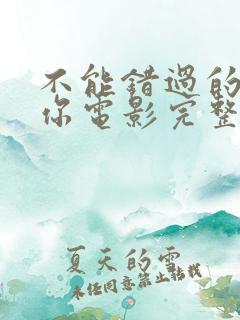 不能错過的
你電影完整
夏天的雪
未经同意禁止转载